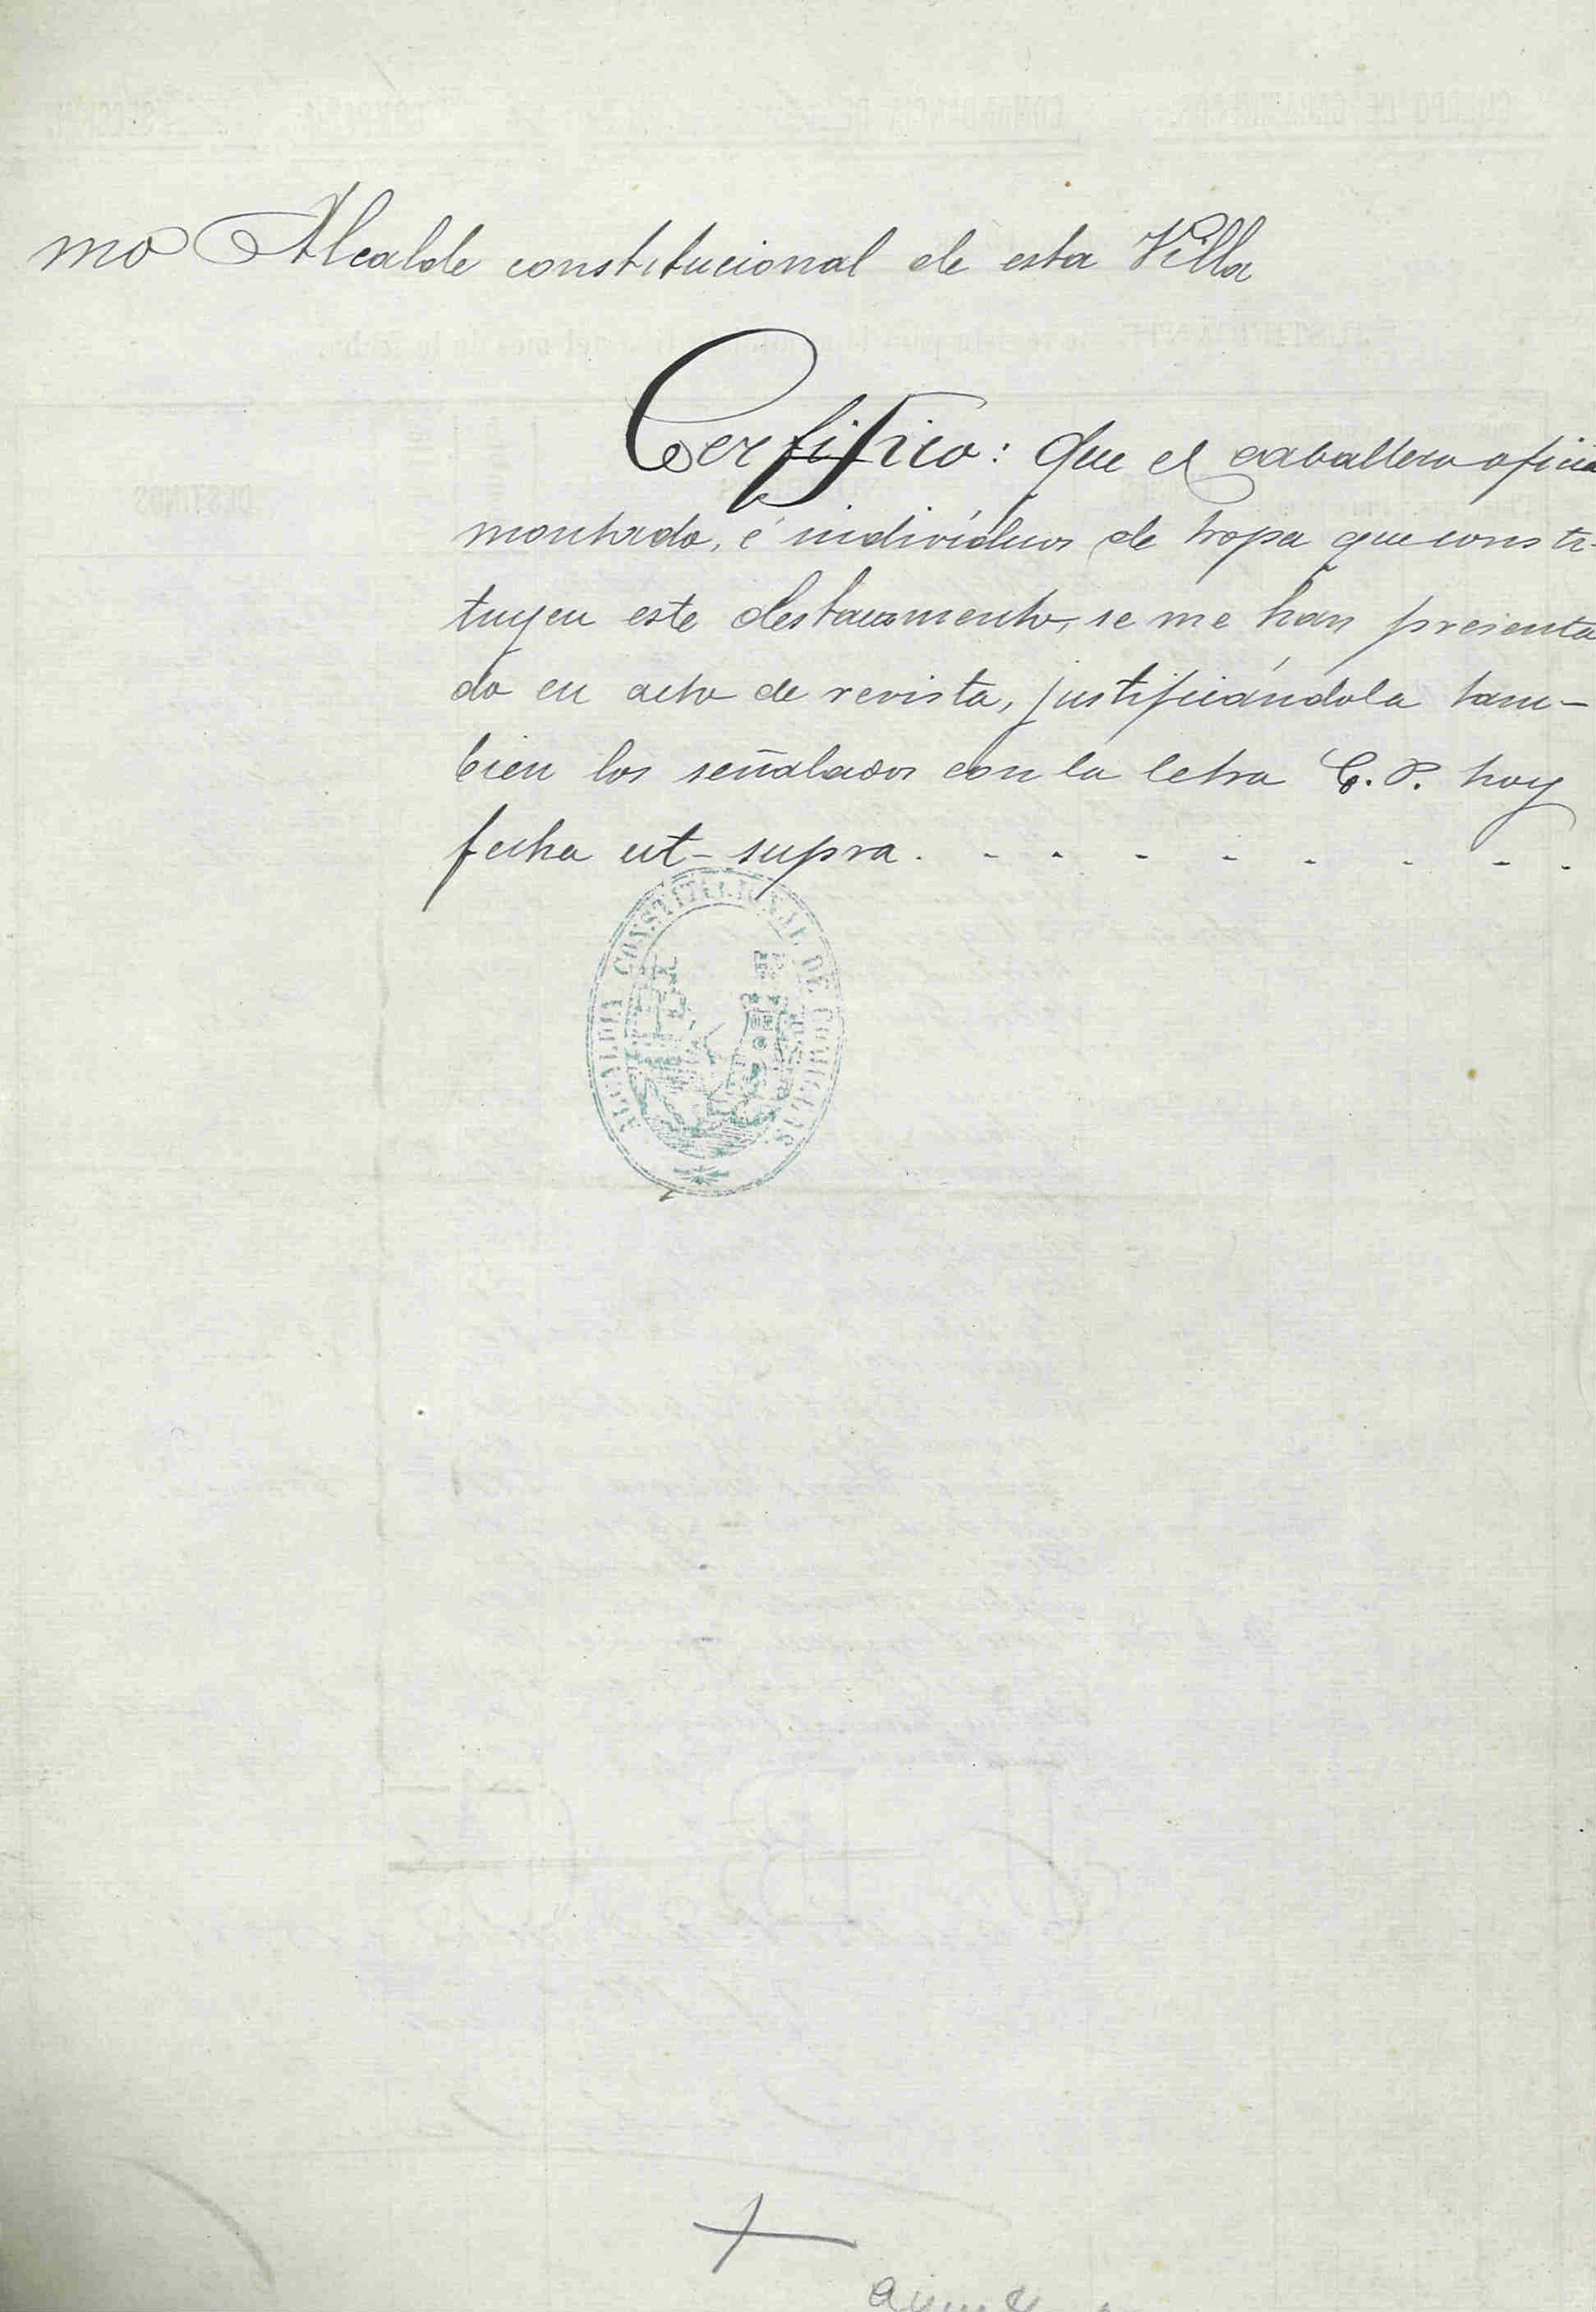 mo Alcalde constitucional de esta Villa
Certifico: Que el caballero oficia
montado, é indivíduos de tropa que consti-
tuyen este destacamento, se me han presenta
do en acto de revista, justificándola tam-
bien los señalados con la letra C.P. hoy
fecha ut-supra.
ALCALDIA CONSTITUCIONAL DE COMILLAS